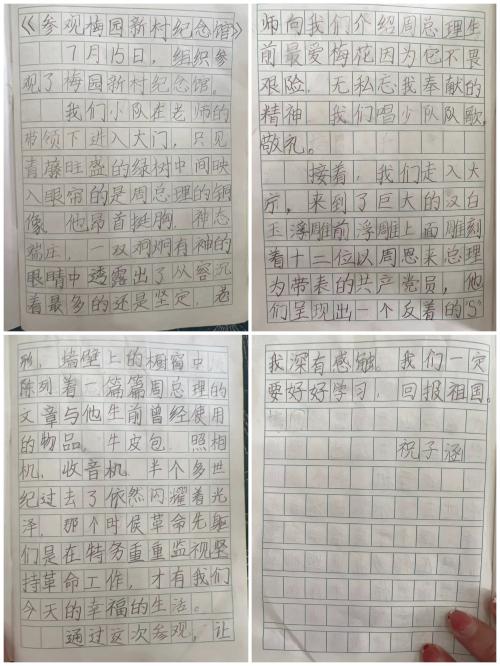 《参观梅园新村纪念馆》
7月15日，组织参
观了梅园新村纪念馆。
我们小队在老师的
带领下进入大门，只见
青藤旺盛的绿树中间映
入眼帘的是周总理的铜
像。他昂首挺胸，神态
端庄，一双炯炯有神的
眼睛中透露出了从容沉
着最多的还是坚定，老
师向我们介绍周总理生
前最爱梅花因为它不畏
艰险，无私忘我奉献的
精神 我们唱少队队歌，
敬礼。
接着，我们走入大
厅，来到了巨大的汉白
玉浮雕前浮雕上面雕刻
着十二位以周恩来总理
为带表的共产党员，他
们呈现出一个反着的“S”
形，墙壁上的橱窗中
陈列着一篇篇周总理的
文章与他生前曾经使用
的物品，牛皮包 照相
机，收音机 半个多世
纪过去了依然闪耀着光
泽，那个时侯革命先驱
们是在特务重重监视坚
持革命工作，才有我们
今天的幸福的生活。
通过这次参观，让
我深有感触。我们一定
要好好学习，回报祖国。
祝子涵